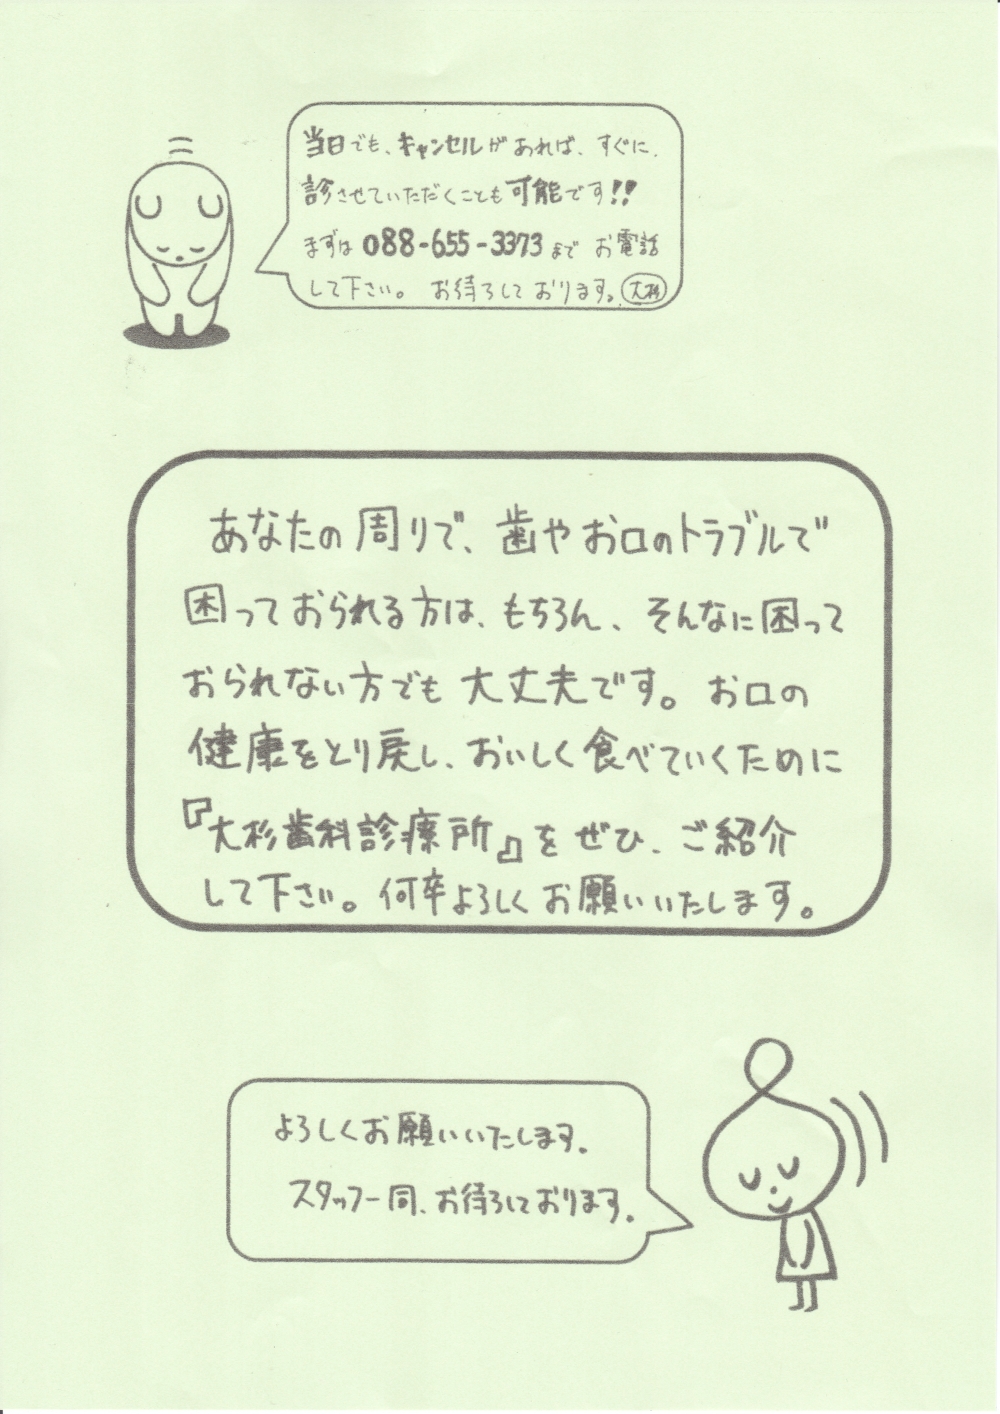 当日でも、キャンセルがあれば、すぐに、
診させていただくことも可能です!!
まずは 088-655-3373 まで お電話
して下さい。 お待ちして おります。大杉
あなたの周りで、歯やお口のトラブルで
困っておられる方は、もちろん、そんなに困って
おられない方でも大丈夫です。お口の
健康をとり戻し、おいしく食べていくために
『大杉歯科診療所』をぜひ、ご紹介
して下さい。何卒よろしくお願いいたします。
よろしくお願いいたします。
スタッフ一同、お待ちしております。